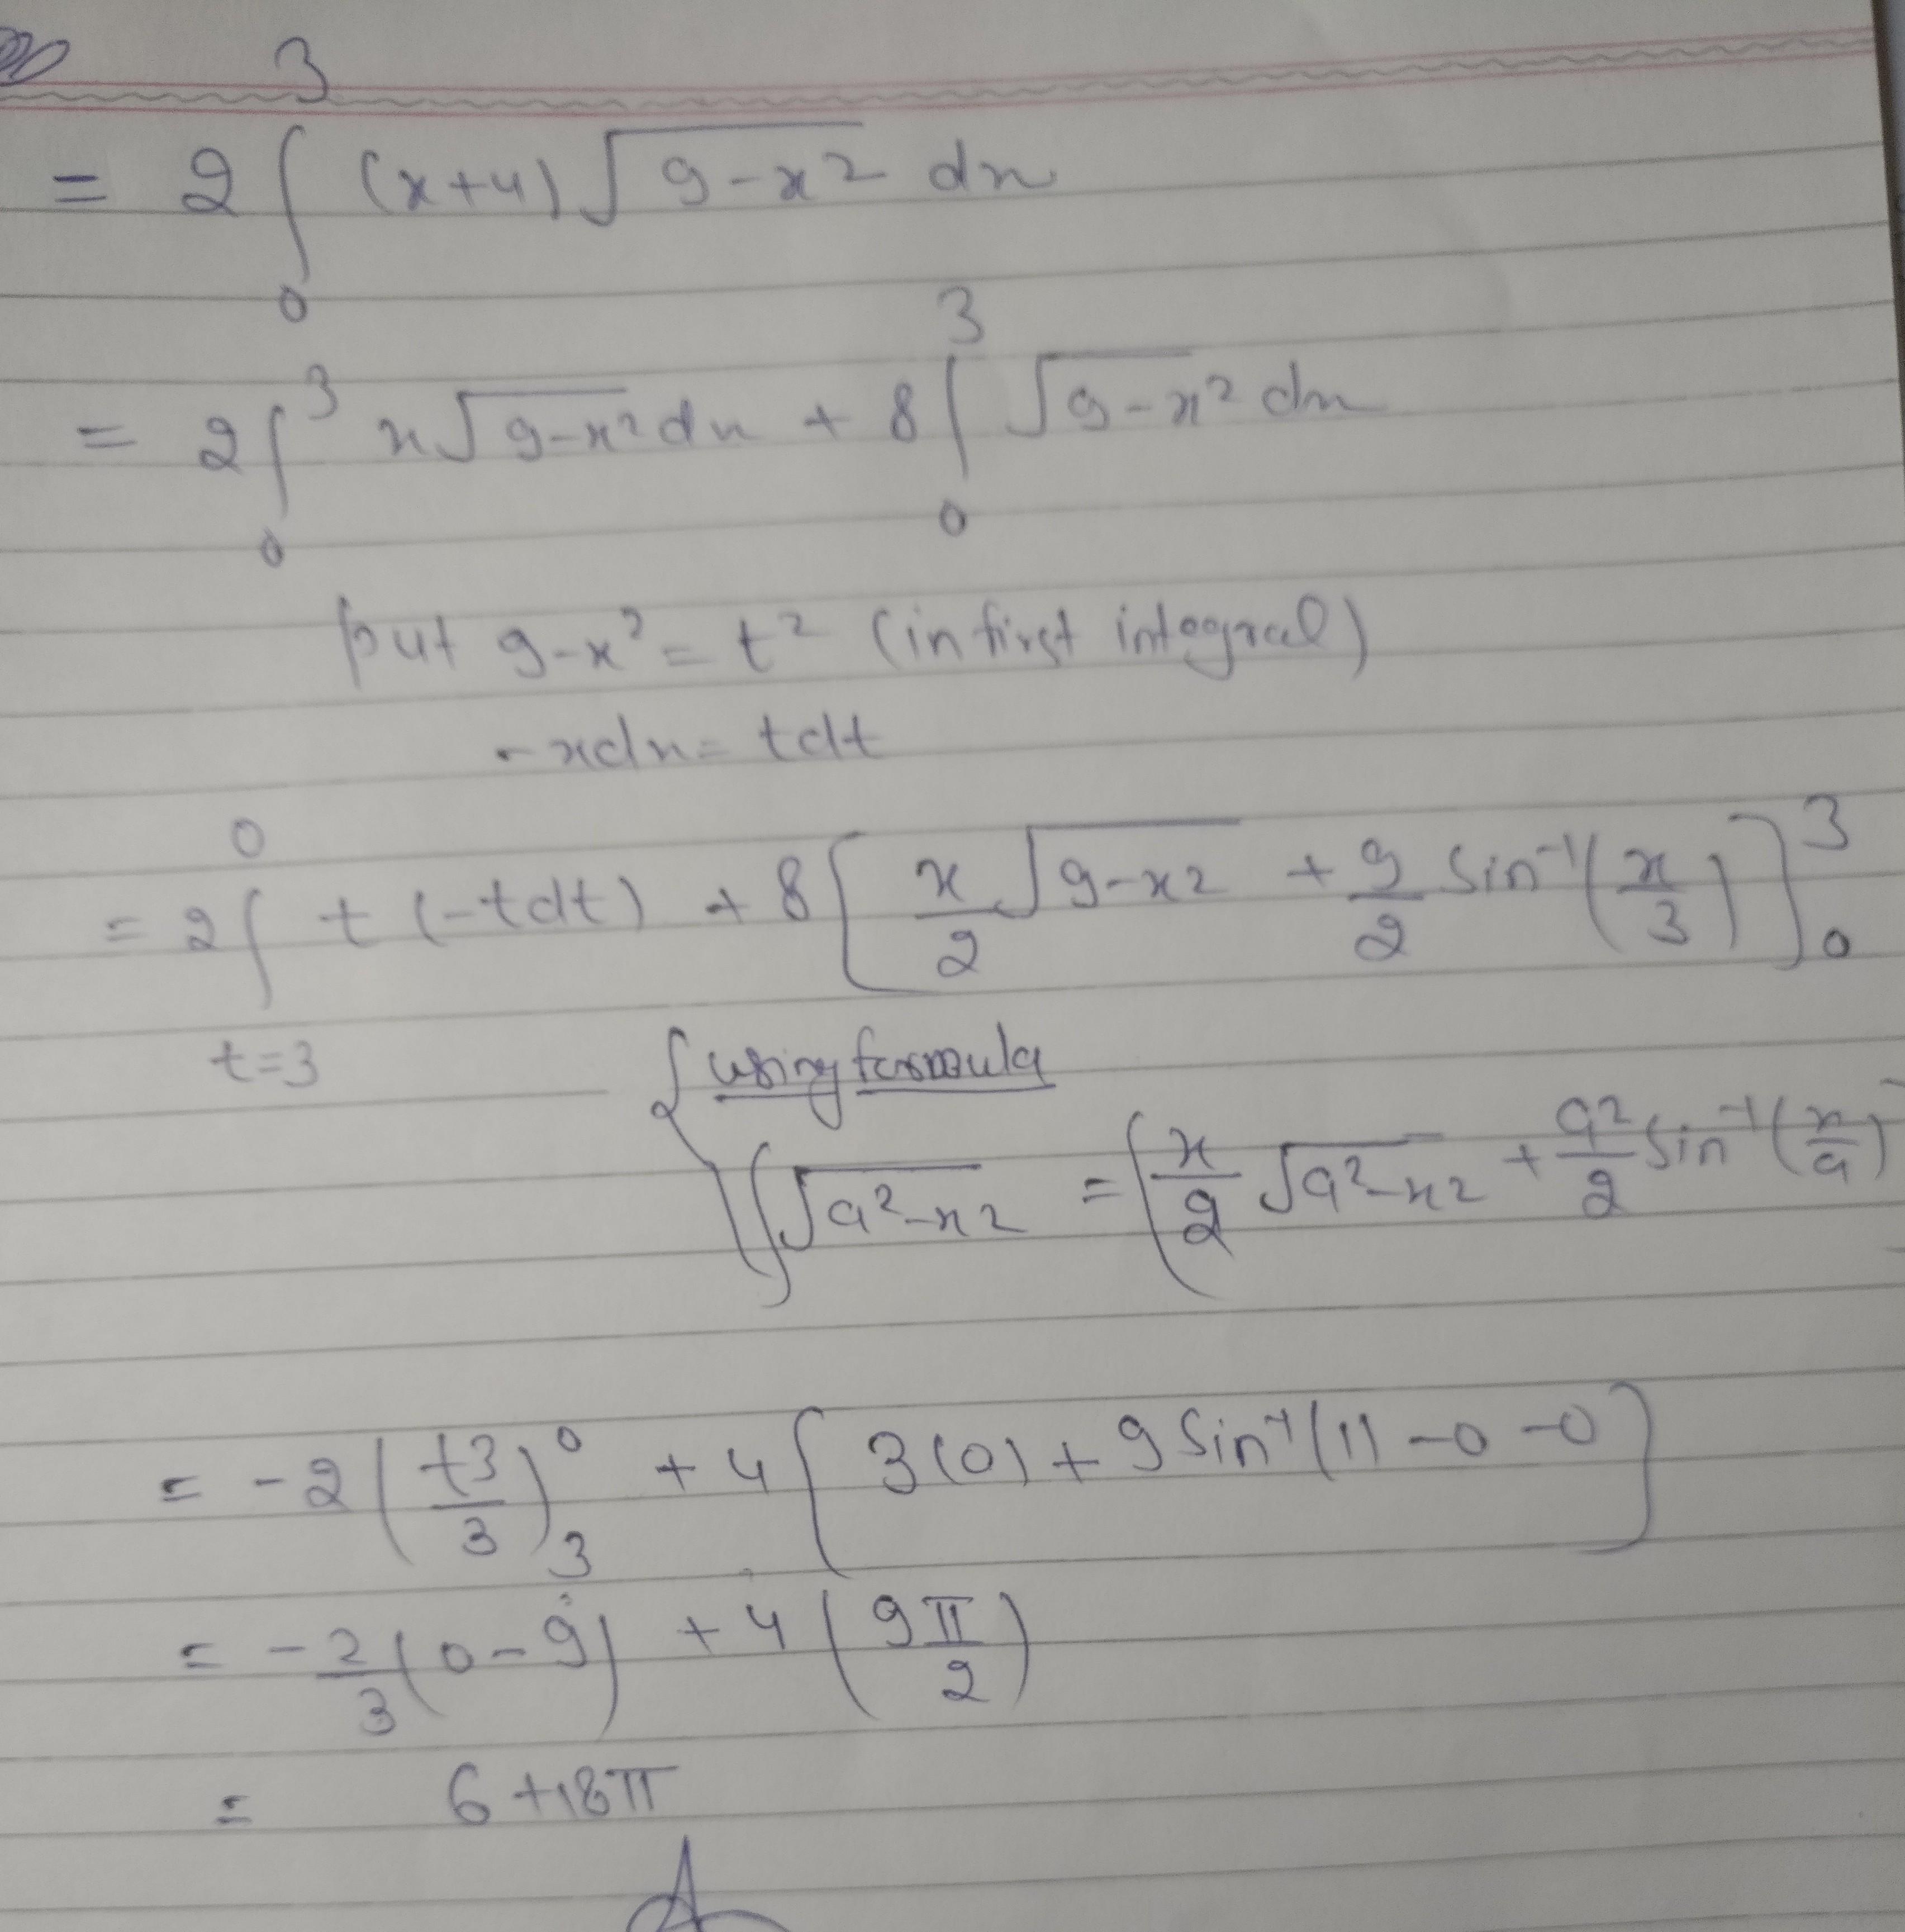 = 2 ∫₀³ (x+4) √(9-x²) dx
= 2 ∫₀³ x√(9-x²) dx + 8 ∫₀³ √(9-x²) dx
put 9-x² = t² (in first integral)
- xdx = tdt
= 2 ∫_{t=3}^{0} t (-tdt) + 8 [ x/2 √(9-x²) + 9/2 sin⁻¹(x/3) ]₀³
{ using formula
∫√(a²-x²) = ( x/2 √(a²-x²) + a²/2 sin⁻¹(x/a)
= -2 (t3/3)₃⁰ + 4 [ 3(0) + 9 sin⁻¹(1) - 0 - 0 ]
= -2/3 (0-9) + 4 (9π/2)
= 6+18π